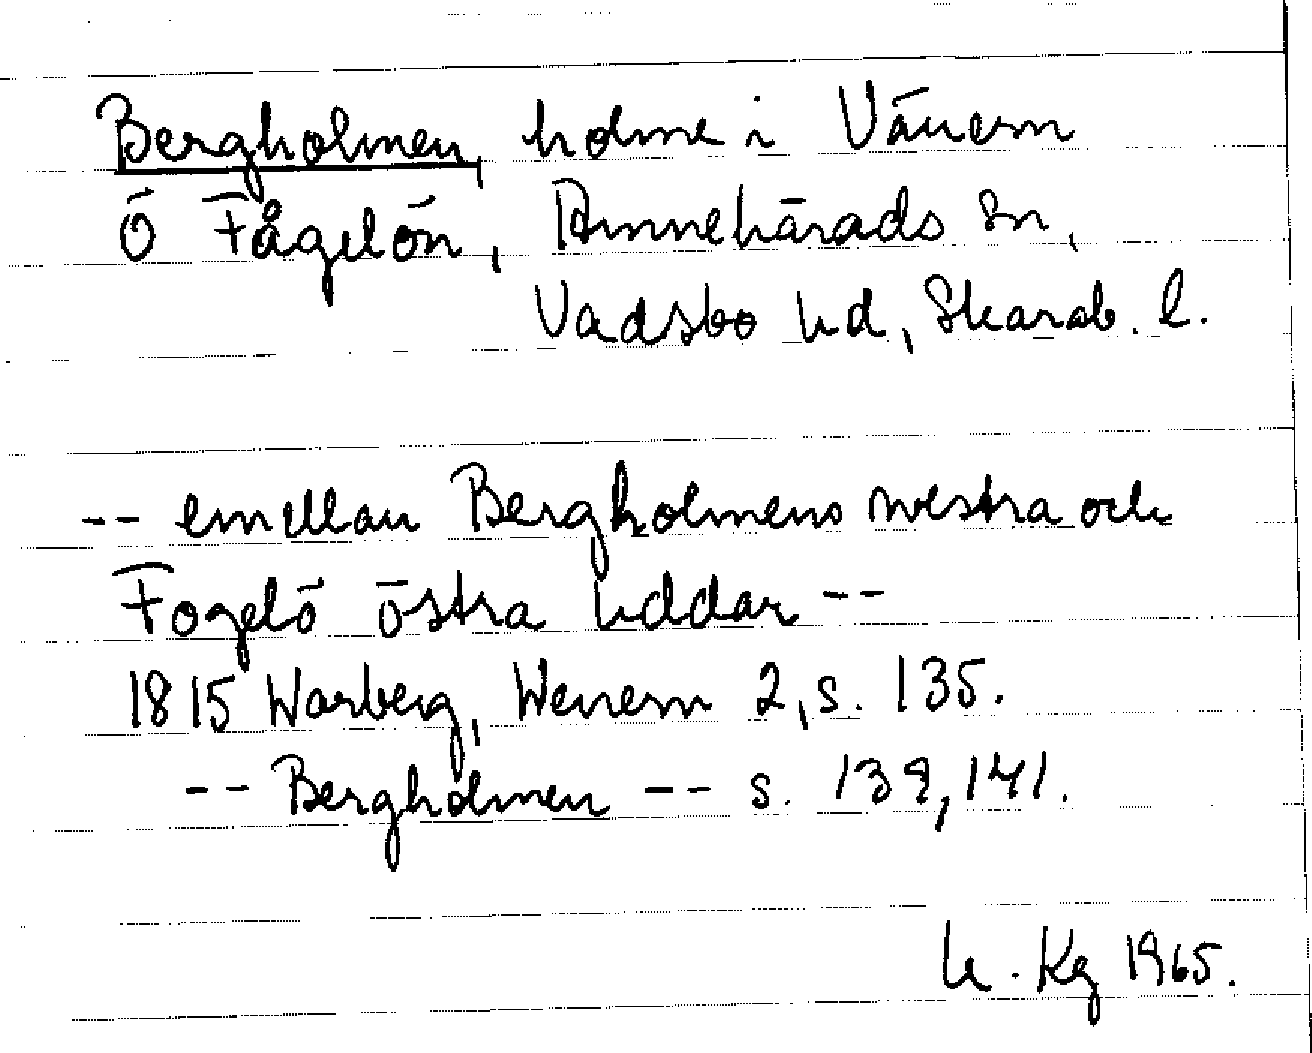 Bergholmen, holme i Vänern
Ö Fågelön, Amnehärads sn,
Vadsbo hd, Skarab. l.
-- emellan Bergholmens westra och
Fogelö östra uddar --
1815 Warberg, Wenern 2, s. 135.
-- Bergholmen -- s. 138, 141.
K. Kg 1965.